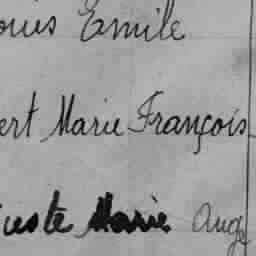 ouis Emile
ert Marie François
uste Marie Aug